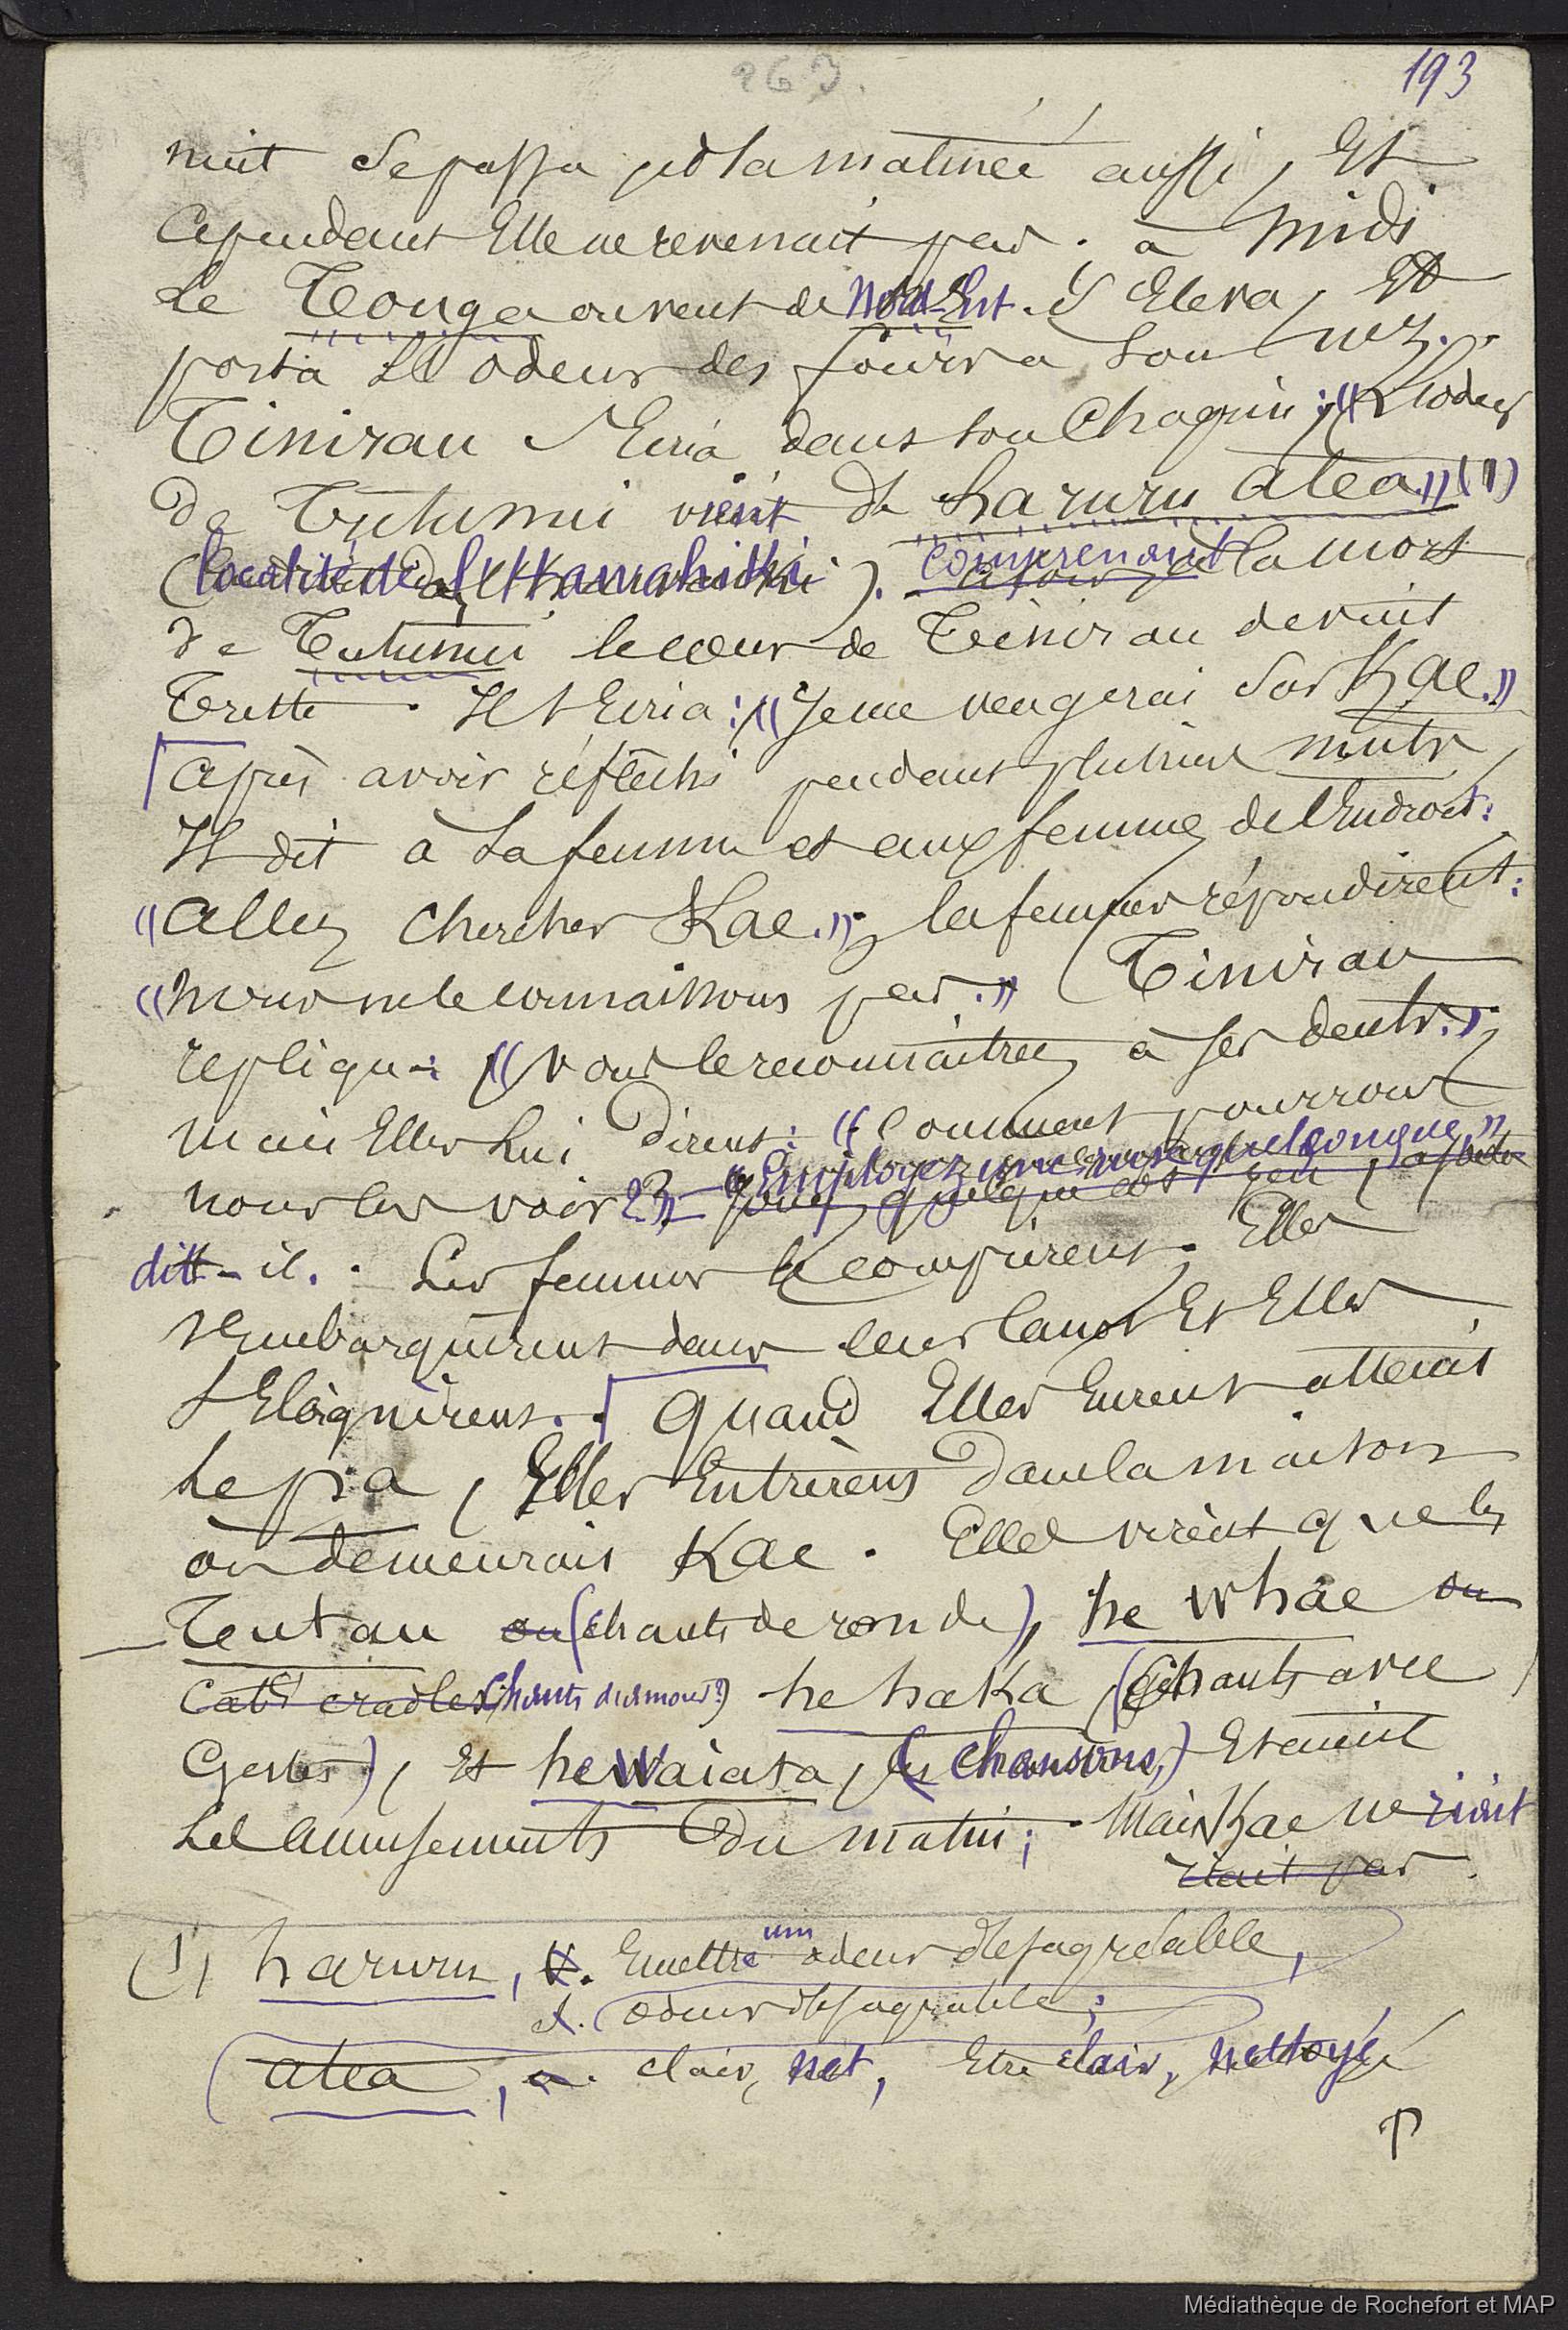 263.
193
nuit se passa, et la matinée aussi, Et
Cependant Elle ne revenait pas. à midi
Le Tonga ou vent de Nord-Est s'Eleva, Et
porta l'odeur des fours à son nez.
Tinirau s'Ecria dans son Chagrin: "L'odeur
De Tutunui vient de haruru atea." (1)
(localité de l'Hawahiki). Comprenant la mort
de Tutunui le cœur de Tinirau devint
Triste. Il s'Ecria: "Je me vengerai sur Kae."
après avoir réfléchi pendant plusieurs nuits,
Il dit à sa femme et aux femmes de l'Endroit:
"Allez chercher Kae."; les femmes répondirent:
"nous ne le connaissons pas." Tinirau
repliqua: "vous le reconnaitrez à ses dents."
mais Elles lui Dirent: "Comment pourrons
nous les voir?" – "Employez une ruse quelconque"
dit-il. Les femmes le comprirent. Elles
s'Embarquèrent dans leur Canot Et Elles
s'Eloignèrent. Quand Elles Eurent atteint
Le pa, Elles Entrèrent Dans la maison
où demeurait Kae. Elles virent que les
Teutau ou (chants de ronde), he whae ou
Cat's cradles (chants d'amour?) he haka (chants avec
Gestes), Et he waiata, (les chansons,) Etaient
Les amusements Du matin; Mais Kae ne riait
riait pas.
(1) haruru, v. Emettre une odeur désagréable,
s. odeur désagréable;
atea, a. clair, net, Etre clair, nettoyé